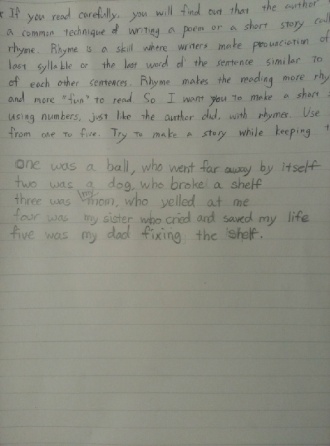 : If you read carefully, you will find out that the author
a common technique of writing a poem or a short story call
rhyme. Rhyme is a skill where writers make pronunciation of
last syllable or the last word of the sentence similar to
of each other sentences. Rhyme makes the reading more rhy
and more "fun" to read. So I want you to make a short
using numbers, just like the author did, with rhymes. Use
from one to five. Try to make a story while keeping t
One was a ball, who went far away by itself
two was a dog, who broke a shelf
three was my mom, who yelled at me
four was my sister who cried and saved my life
five was my dad fixing the shelf.